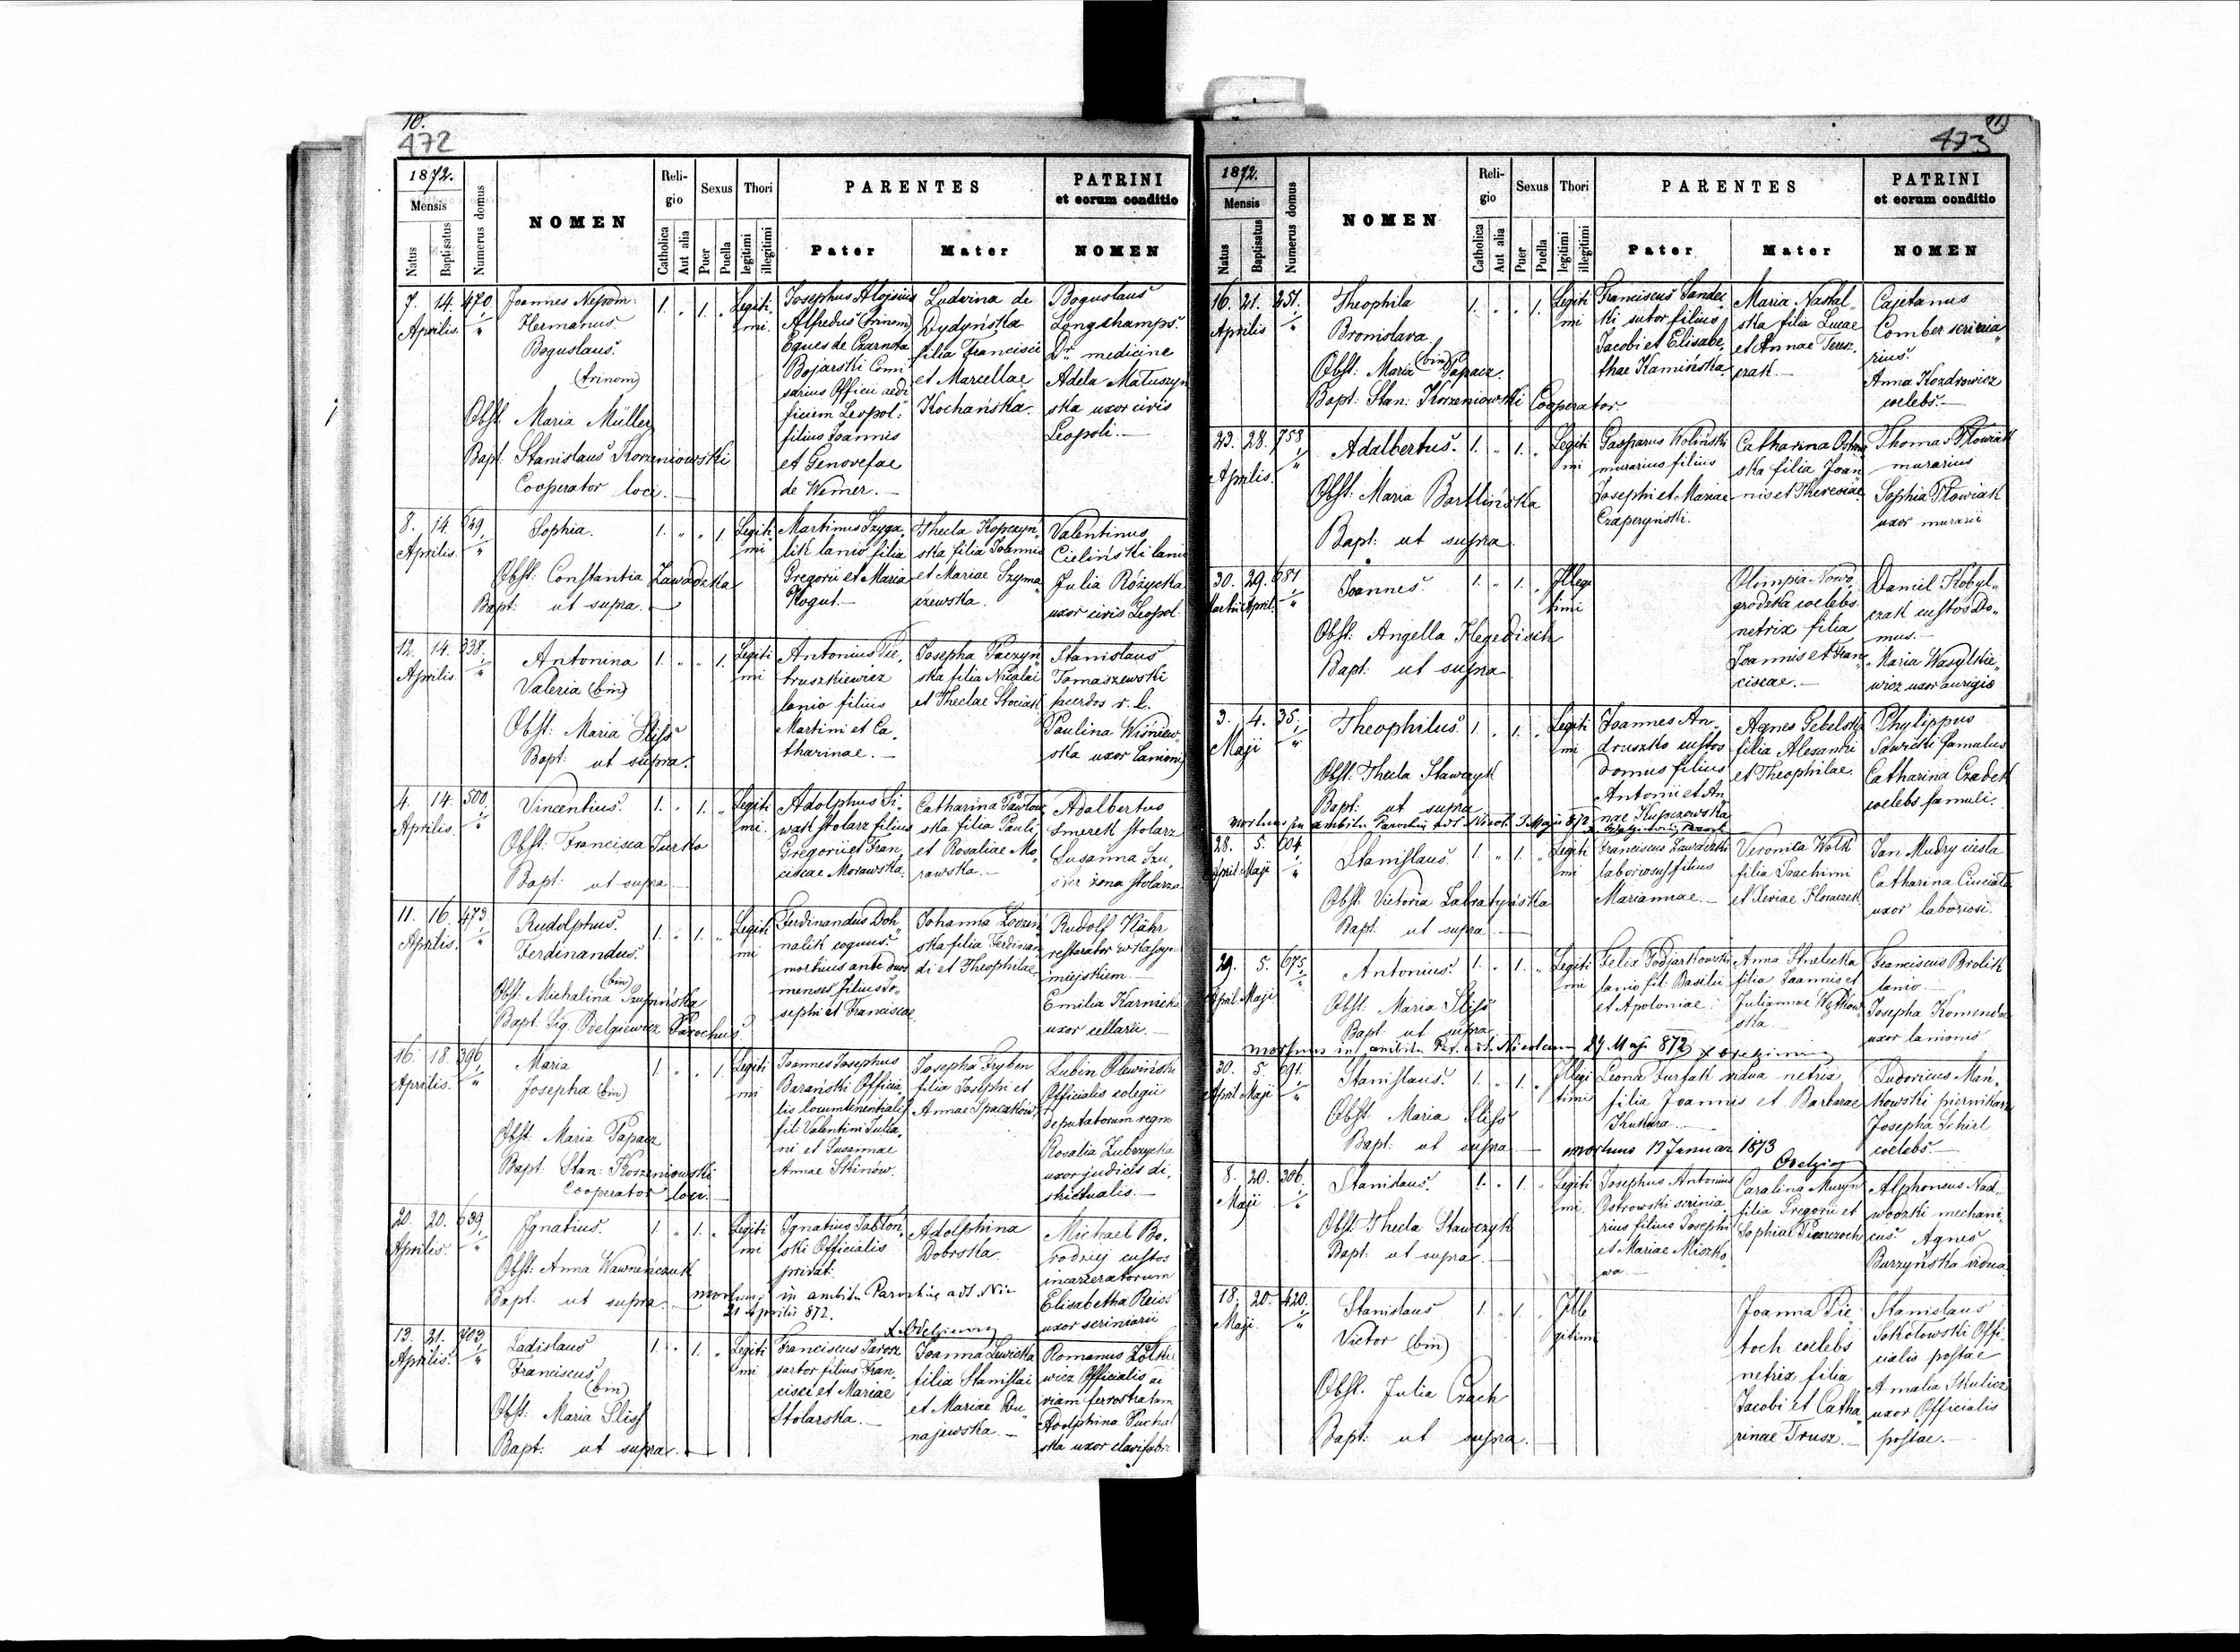 10.
472
1872.
Mensis
Natus
Baptisatus
Numerus domus
NOMEN
Reli-
gio
Catholica
Aut alia
Sexus
Puer
Puella
Thori
legitimi
illegitimi
PARENTES
Pater
Mater
PATRINI
et eorum conditio
NOMEN
7. 14. 470
Aprilis.
Joannes Nepom:
Hermanus
Boguslaus.
(trinom)
Obst. Maria Müller
Bapt. Stanislaus Korzeniowski
Cooperator loci.
1. " 1. "
Legiti
mi.
Josephus Alojsius
Alfredus (trinom)
Eques de Czarnota
Bojarski Comi
sarius Officii aedi
ficiem Leopol:
filius Joannis
et Genovefae
de Werner.
Ludvina de
Dydyńska
filia Francisci
et Marcellae
Kochańska.
Boguslaus
Longchamps.
Dr. medicine
Adela Matuszyn
ska uxor civis
Leopoli.
8. 14. 649
Aprilis.
Sophia.
Obst: Constantia Zawadzka
Bapt: ut supra.
1. " " 1
Legiti
mi
Martinus Szyga
lik lanio filia
Gregorii et Maria
Kogut.
Thecla Kopczyń
ska filia Joannis
et Mariae Szyma
czewska.
Valentinus
Cieliński lanio
Julia Różycka
uxor civis Leopol.
12. 14. 338.
Aprilis
Antonina
Valeria (bin)
Obst: Maria Sliss
Bapt: ut supra.
1. " " 1.
Legiti
mi
Antonius Pie
truszkiewicz
lanio filius
Martini et Ca
tharinae.
Josepha Paczyn
ska filia Nicolai
et Theclae Stociak
Stanislaus
Tomaszewski
sacerdos r. l.
Paulina Wiśniew
ska uxor lanionis
4. 14. 500.
Aprilis.
Vincentius.
Obst: Francisca Turko
Bapt: ut supra
1. " 1. "
Legiti
mi.
Adolphus Si
wak stolarz filius
Gregorii et Fran
ciscae Morawska.
Catharina Pawłow
ska filia Pauli
et Rosaliae Mo
rawska.
Adalbertus
Smerek stolarz
Susanna Szu
ster żona stolarza
11. 16. 473.
Aprilis.
Rudolphus.
Ferdinandus.
(bin)
Obst: Michalina Szupińska
Bapt. Sig Odelgiewicz Parochus.
1. " 1. "
Legiti
mi
Ferdinandus Doh
nalik coquus.
mortuus ante duos
menses filius Jo
sephi et Franciscae
Johanna
ska filia Ferdinan
di et Theophilae
Rudolf Nähr
restorator w Kasyn
miejskiem.
Emilia Karnicka
uxor cellarii.
16. 18. 396
Aprilis.
Maria
Josepha (bin)
Obst. Maria Papacz
Bapt: Stan: Korzeniowski
Cooperator loci.
1 " " 1
Legiti
mi
Joannes Josephus
Barański Officia
lis locumtenentialis
fil: Valentini Julia
ni et Susannae
Annae Skinów.
Josepha Fryben
filia Josephi et
Annae Spacaków
Lubin Olewiński
Officialis colegii
deputatorum regni
Rosalia Zubrzycka
uxor judicis di
strictualis.
20. 20. 639.
Aprilis.
Ignatius.
Obst: Anna Wawreńczuk
Bapt: ut supra.
1. " 1. "
Legiti
mi
Ignatius Jabłon
ski Officialis
privat:
Adolphina
Dobrska.
Michael Bo
rodziej custos
incarceratorum
Elisabetha Reiss
uxor scriniarii
mortuus in ambitu Parochiae ad S. Nic
21 Aprilis 872.
13. 21. 703.
Aprilis.
Ladislaus
Franciscus
(bin)
Obst: Maria Sliss
Bapt: ut supra.
1. " 1. "
Legiti
mi
Franciscus Jarosz
sartor filius Fran
cisci et Mariae
Stolarska.
Joanna Lewicka
filia Stanislai
et Mariae Du
najewska.
Romanus Żółkie
wicz Officialis ai
viam ferrostratam
Adolphina Puchal
ska uxor clavifabr
11.
473
1872.
Mensis
Natus
Baptisatus
Numerus domus
NOMEN
Reli-
gio
Catholica
Aut alia
Sexus
Puer
Puella
Thori
legitimi
illegitimi
PARENTES
Pater
Mater
PATRINI
et eorum conditio
NOMEN
16. 21. 251.
Aprilis
Theophila
Bronislava
(bin)
Obst: Maria Papacz.
Bapt: Stan: Korzeniowski Cooperator.
1. " " 1.
Legiti
mi
Franciscus Sandec
ki sutor filius
Jacobi et Elisabe
thae Kamińska
Maria Nastal
ska filia Lucae
et Annae Teresz
czak
Cajetanus
Comber scrinia
rius.
Anna Kozdrowicz
coelebs.
23. 28. 758
Aprilis.
Adalbertus.
Obst: Maria Bartlińska
Bapt: ut supra
1. " 1. "
Legiti
mi
Gasparus Woliński
murarius filius
Josephi et Mariae
Czaperzyński.
Catharina Ostrow
ska filia Joan
nis et Theresiae.
Thomas Płowiak
murarius
Sophia Płowiak
uxor murarii
30. 29. 681.
Martii April.
Joannes.
Obst: Angella Hegedisch
Bapt: ut supra
1. " 1. "
Illegi
timi
Olimpia Nowo
grodzka coelebs
netrix filia
Joannis et Fran
ciscae.
Daniel Kobyl
czak custos Do
mus.
Maria Wasylkie
wicz uxor aurigis
3. 4. 35.
Maji
Theophilus.
Obst: Thecla Stawczyk
Bapt: ut supra
1 " 1. "
Legiti
mi
Joannes An
druszko custos
domus filius
Antonii et An
nae Kupczowska
Agnes Gebelska
filia Alexandri
et Theophilae.
Phylippus
Sawicki famulus
Catharina Czadek
coelebs famuli.
mortuus in ambitu Parochiae ad S. Nicol. 3 Maji 872
28. 5. 604.
April Maji
Stanislaus.
Obst: Victoria Zabratyńska
Bapt: ut supra
1 " 1. "
Legiti
mi
Franciscus Zawadzki
laboriosus filius
Mariannae.
Veronica Wołk
filia Joachimi
et Xeniae
Jan Mudry ciesla
Catharina Ciuciała
uxor laboriosi.
29. 5. 675.
April Maji
Antonius.
Obst: Maria Sliss
Bapt: ut supra
1. " 1. "
Legiti
mi
Felix Podjarkowski
lanio fil: Basilii
et Apoloniae.
Anna Strelecka
filia Joannis et
Juliannae
ska
Franciscus Brolik
lanio
Josepha Komenda
uxor lanionis
mortuus in ambitu Par. ad S. Nicolaum 29 Maji 872
30. 5. 691.
April Maji
Stanislaus.
Obst. Maria Sliss
Bapt: ut supra
1. " 1. "
Illegi
timi
Leona Furtak vidua netrix
filia Joannis et Barbarae
Kukura.
Ludovicus Mań
kowski piernikarz
Josepha Schirl
coelebs.
mortuus 13 Januar 1873
8. 20. 306.
Maji
Stanislaus.
Obst: Thecla Stawczyk
Bapt: ut supra
1. " 1. "
Legiti
mi.
Josephus Antonius
Ostrowski scrinia
rius filius Josephi
et Mariae Miszko
wa
Carolina Muryn
filia Gregorii et
Sophiae Pioszczoch
Alphonsus Nad
wodzki mechani
cus. Agnes
Burzyńska vidua
18. 20. 420.
Maji.
Stanislaus
Victor (bin)
Obst. Julia Czach
Bapt: ut supra.
1. " 1. "
Ille
gitimi
Joanna Pie
toch coelebs
netrix filia
Jacobi et Catha
rinae Trusz.
Stanislaus
Sokołowski Offi
cialis postae
Amalia Skulicz
uxor Officialis
postae.